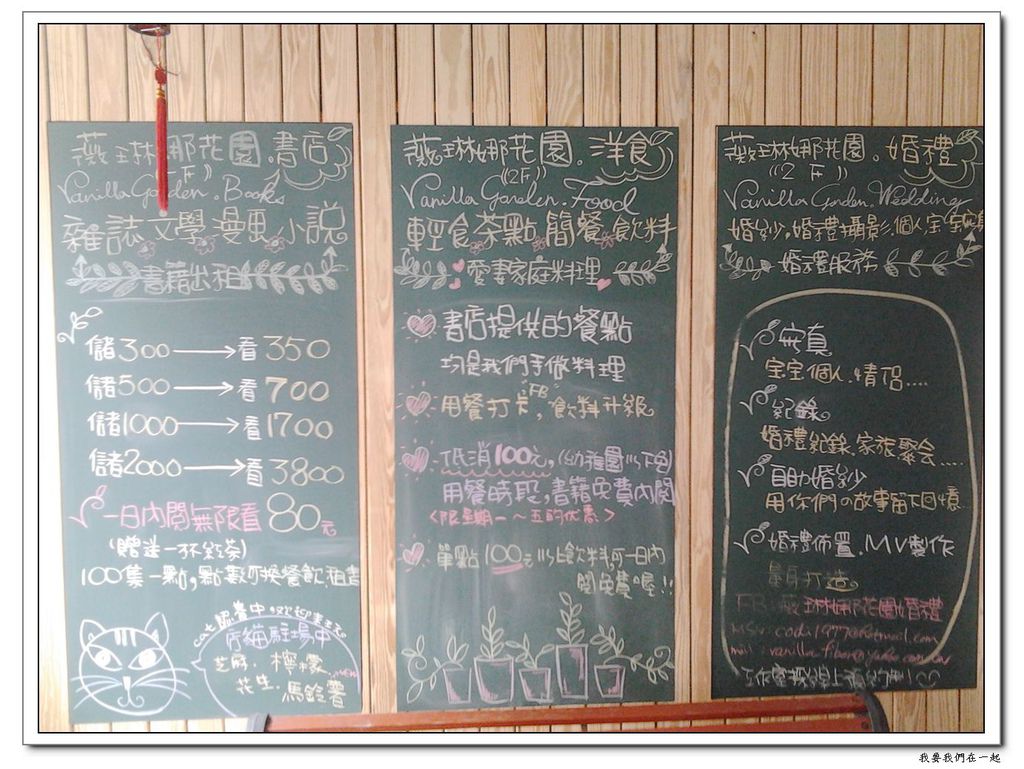 薇琳娜花園.書店
(1F)
Vanilla Garden.Books
雜誌文學漫画小說
書籍出租
儲300→看350
儲500→看700
儲1000→看1700
儲2000→看3800
一日內閱無限看80元
(贈送一杯紅茶)
100集一點,點數可換餐飲.租書
cat 認養中,歡迎來玩。
店貓駐場中
芝麻.檸檬
花生.馬鈴薯
薇琳娜花園.洋食
(2F)
Vanilla Garden.Food
輕食.茶點.簡餐.飲料
愛妻家庭料理
書店提供的餐點
均是我們手做料理
用餐打卡,飲料升級。
FB
低消100元,(幼稚園以下免)
用餐時段,書籍免費內閱
<限星期一~五的优惠>
單點100元以上飲料可一日內
閱免費喔!!
薇琳娜花園.婚禮
(2F)
Vanilla Garden.Wedding
婚紗.婚禮攝影.個人.宝宝寫真
婚禮服務
寫真
宝宝.個人.情侶....
紀錄。
婚禮紀錄.家族聚会....
自助婚紗
用你們の故事留下回憶
婚禮佈置.MV製作
量身打造。
FB:薇琳娜花園婚禮
我要我們在一起